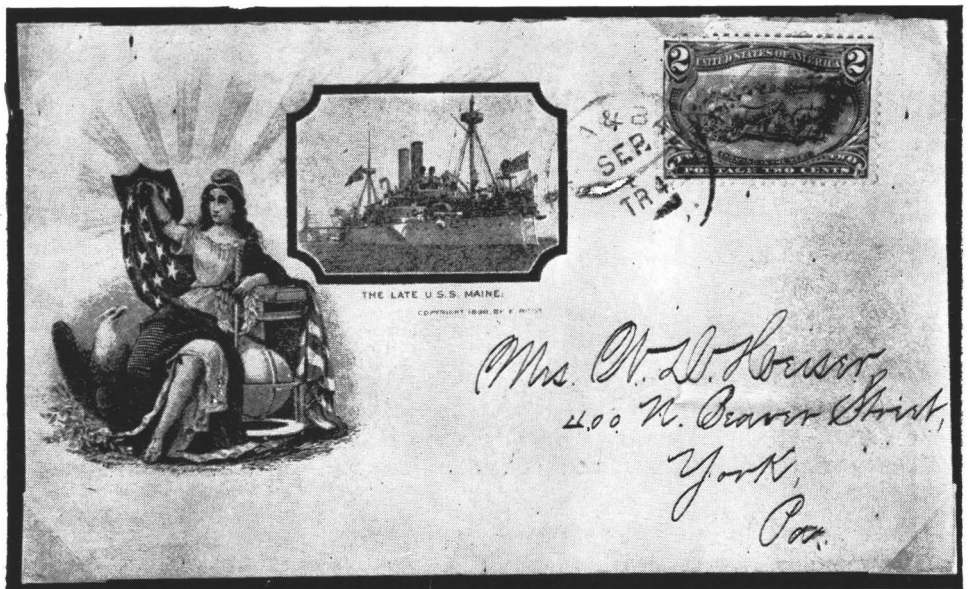 2 UNITED STATES OF AMERICA 2
POSTAGE TWO CENTS
& B
SEP
TR 4
THE LATE U.S.S. MAINE.
COPYRIGHT 1898, BY F.
Mrs. W. D. Heiser
400 N. Beaver Street,
York,
Pa.